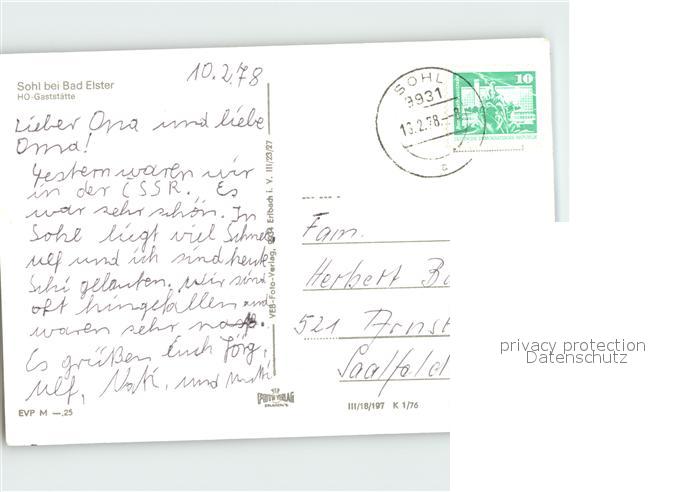 10.2.78
Sohl bei Bad Elster
HO-Gaststätte
Lieber Opa und liebe
Oma!
Gestern waren wir
in der ČSSR. Es
war sehr schön. In
Sohl liegt viel Schnee
Ulf und ich sind heute
Schi gelaufen. Wir sind
oft hingefallen und
waren sehr naß.
Es grüßen Euch Jörg,
Ulf, und
EVP M —,25
VEB-Foto-Verlag, Erlbach i. V. III/23/27
FOTO VERLAG
ERLBACH
III/18/197 K 1/76
SOHL
9931
13.2.78.-8
c
10
DEUTSCHE DEMOKRATISCHE REPUBLIK
Fam.
Herbert
521 Arnst
Saalfeld
privacy protection
Datenschutz